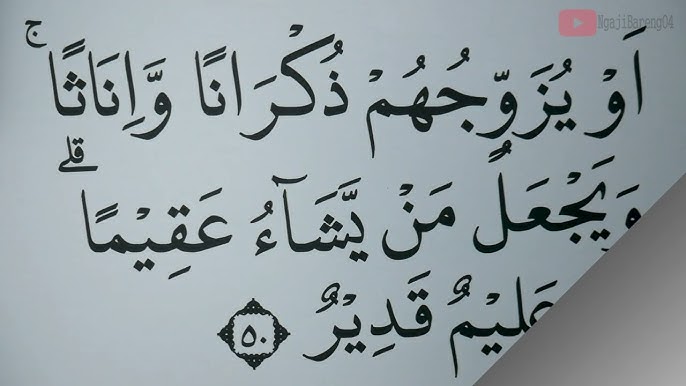 NgajiBareng04
اَوْ يُزَوِّجُهُمْ ذُكْرَانًا وَّاِنَاثًا ۚ
وَيَجْعَلُ مَنْ يَّشَآءُ عَقِيْمًا ۗ
عَلِيْمٌ قَدِيْرٌ ٥٠